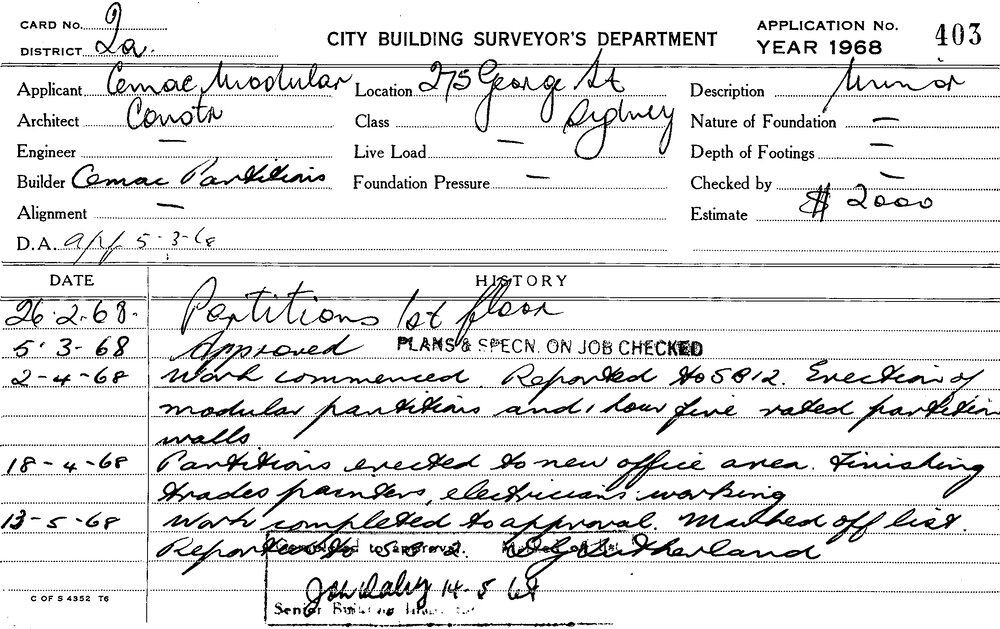 CARD No. 2
DISTRICT 2a.
CITY BUILDING SURVEYOR'S DEPARTMENT
APPLICATION No. 403
YEAR 1968
Applicant Cemac Modular
Location 275 George St
Description Minor
Architect Constr
Class Sydney
Nature of Foundation —
Engineer —
Live Load —
Depth of Footings —
Builder Cemac Partitions
Foundation Pressure —
Checked by —
Alignment —
Estimate $ 2000
D.A. apf 5-3-68
DATE HISTORY
26.2.68. Partitions 1st floor
5.3-68 Approved PLANS & SPECN. ON JOB CHECKED
2-4-68 Work commenced. Reported to S B 12. Erection of
modular partitions and 1 hour fire rated partition
walls
18-4-68 Partitions erected to new office area. Finishing
trades painters, electricians working
13-5-68 Work completed to approval. Marked off list.
Reported to Sutherland
Completed to approval.
14-5-68
Senior Building
C OF S 4352 T6